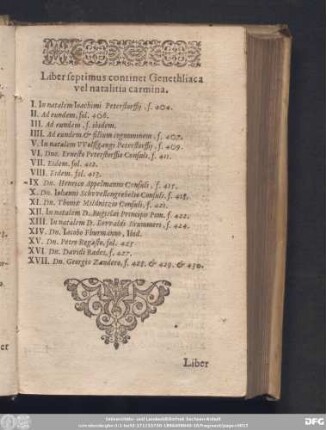 Liber septimus continet Genethliaca
vel natalitia carmina.
I. In natalem Ioachimi Peterstorffij, f. 404.
II. Ad eundem. fol. 406.
III. Ad eundem. f. ibidem.
IIII. Ad eundem & filium cognominem, f. 407.
V. In natalem VVolffgangi Peterstorffij, f. 409.
VI. Dno. Ernesto Peterstorffio Consuli, f. 411.
VII. Eidem. fol. 412.
VIII. Eidem. fol. 413.
IX Dn. Henrico Appelmanno Consuli, f. 415.
X. Dn. Iohanni Consuli, f. 418.
XI. Dn. Thomæ Mildnitzio Consuli, f. 421.
XII. In natalem D. Bugislai Principis Pom. f. 422.
XIII. In natalem D. f. 424.
XIV. Dn. Iacobo Fhurmanno, Ibid.
XV. Dn. Petro fol. 425
XVI. Dn. Davidi Rades, f. 427.
XVII. Dn. Georgio Zandero, f. 428. & 429. & 430.
er
Liber
DFG